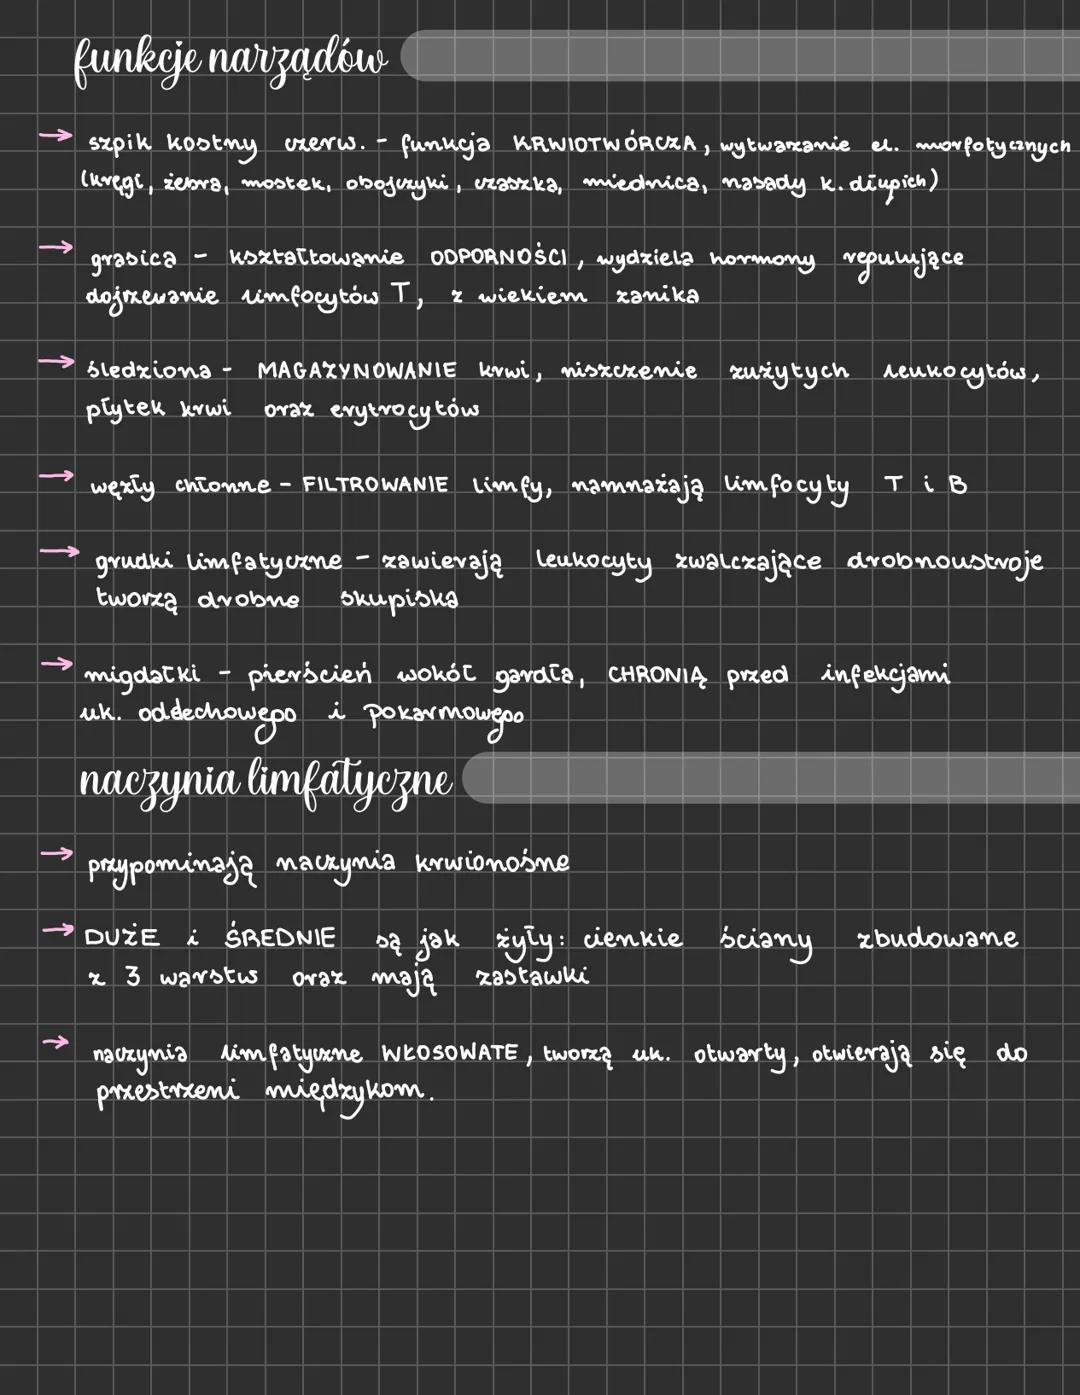 funkcje narządów
→ szpik kostny czerw. - funkcja KRWIOTWÓRCZA, wytwarzanie el. morfotycznych
(kręgi, żebra, mostek, obojczyki, czaszka, miednica, nasady k. długich)
→ grasica - kształtowanie ODPORNOŚCI, wydziela hormony regulujące
dojrzewanie limfocytów T, z wiekiem zanika
→ śledziona - MAGAZYNOWANIE krwi, niszczenie zużytych leukocytów,
płytek krwi oraz erytrocytów
→ węzły chłonne - FILTROWANIE limfy, namnażają limfocyty T i B
→ grudki limfatyczne - zawierają leukocyty zwalczające drobnoustroje
tworzą drobne skupiska
→ migdałki - pierścień wokół gardła, CHRONIĄ przed infekcjami
uk. oddechowego i pokarmowego
naczynia limfatyczne
→ przypominają naczynia krwionośne
→ DUŻE i ŚREDNIE są jak żyły: cienkie ściany zbudowane
z 3 warstw oraz mają zastawki
→ naczynia limfatyczne WŁOSOWATE, tworzą uk. otwarty, otwierają się do
przestrzeni międzykom.